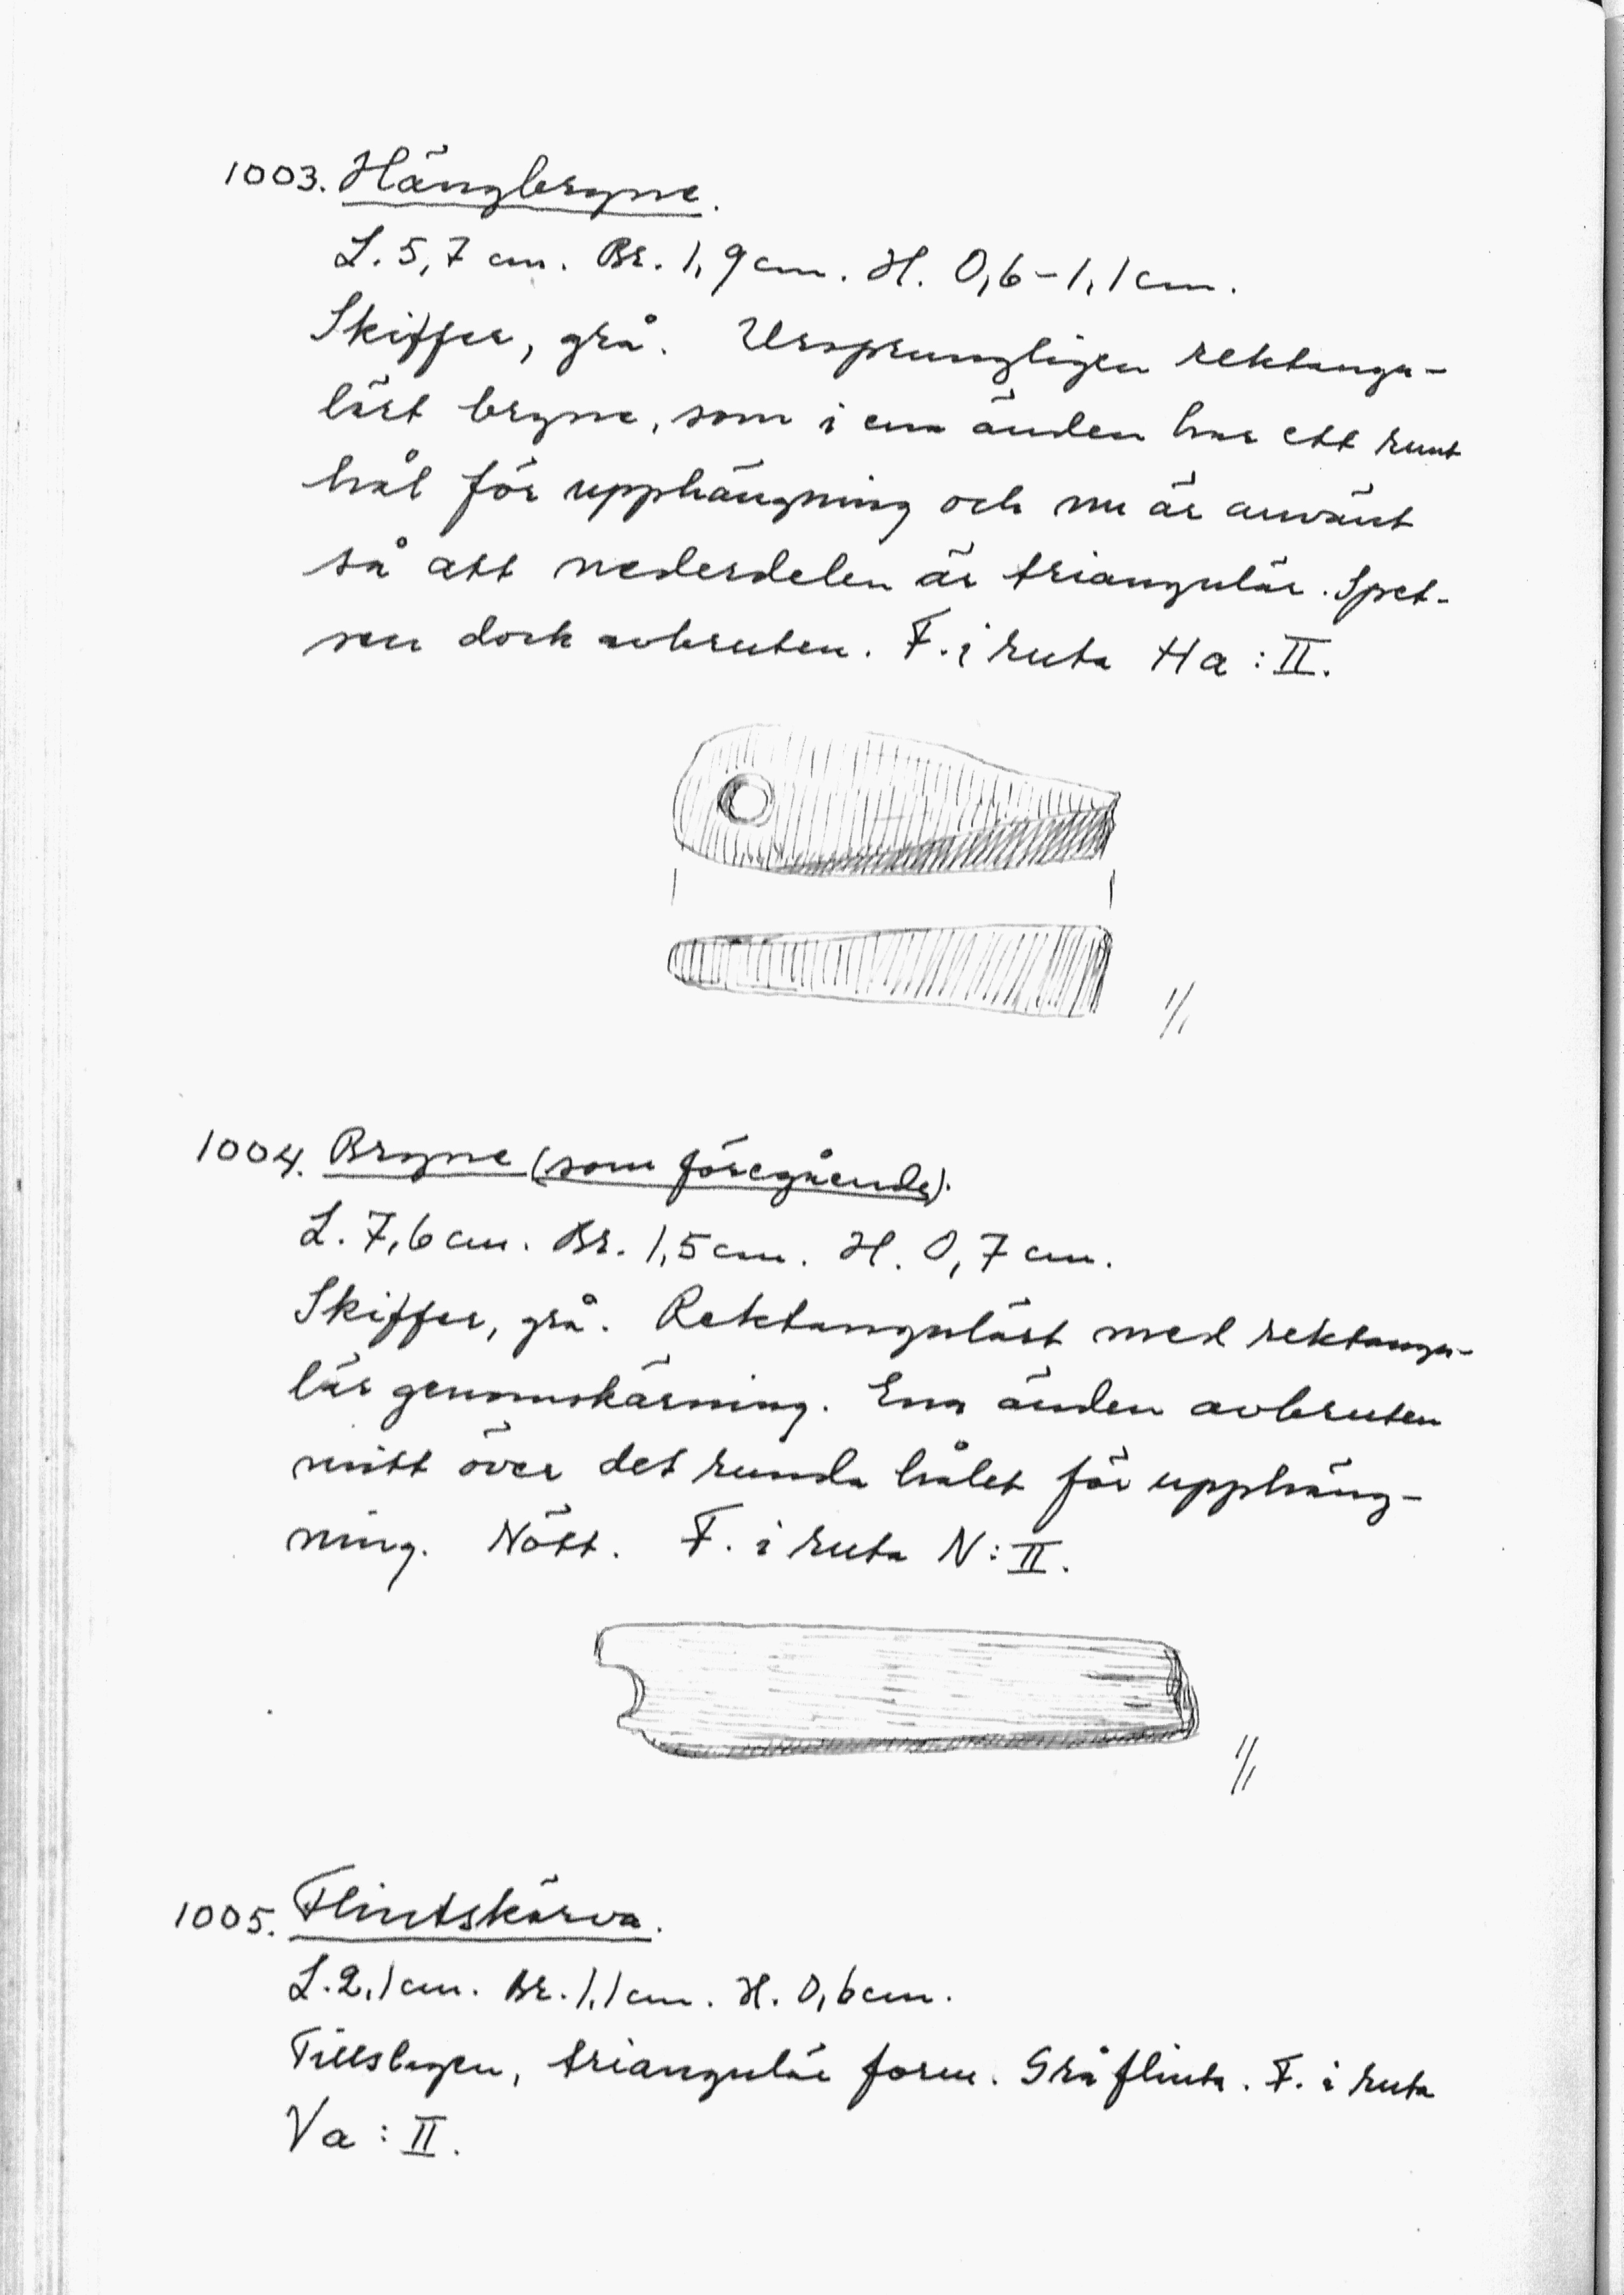 1003. Hängbryne.
L. 5,7 cm. Br. 1,9 cm. H. 0,6–1,1 cm.
Skiffer, grå. Ursprungligen rektangu-
lärt bryne, som i ena änden har ett runt
hål för upphängning och nu är använt
så att nederdelen är triangulär. Spet-
sen dock avbruten. F. i ruta Ha : II.
1/1
1004. Bryne (som föregående).
L. 7,6 cm. Br. 1,5 cm. H. 0,7 cm.
Skiffer, grå. Rektangulärt med rektangu-
lär genomskärning. Ena änden avbruten
mitt över det runda hålet för upphäng-
ning. Nött. F. i ruta N : II.
1/1
1005. Flintskärva.
L. 2,1 cm. Br. 1,1 cm. H. 0,6 cm.
Tillslagen, triangulär form. Grå flinta. F. i ruta
Va : II.